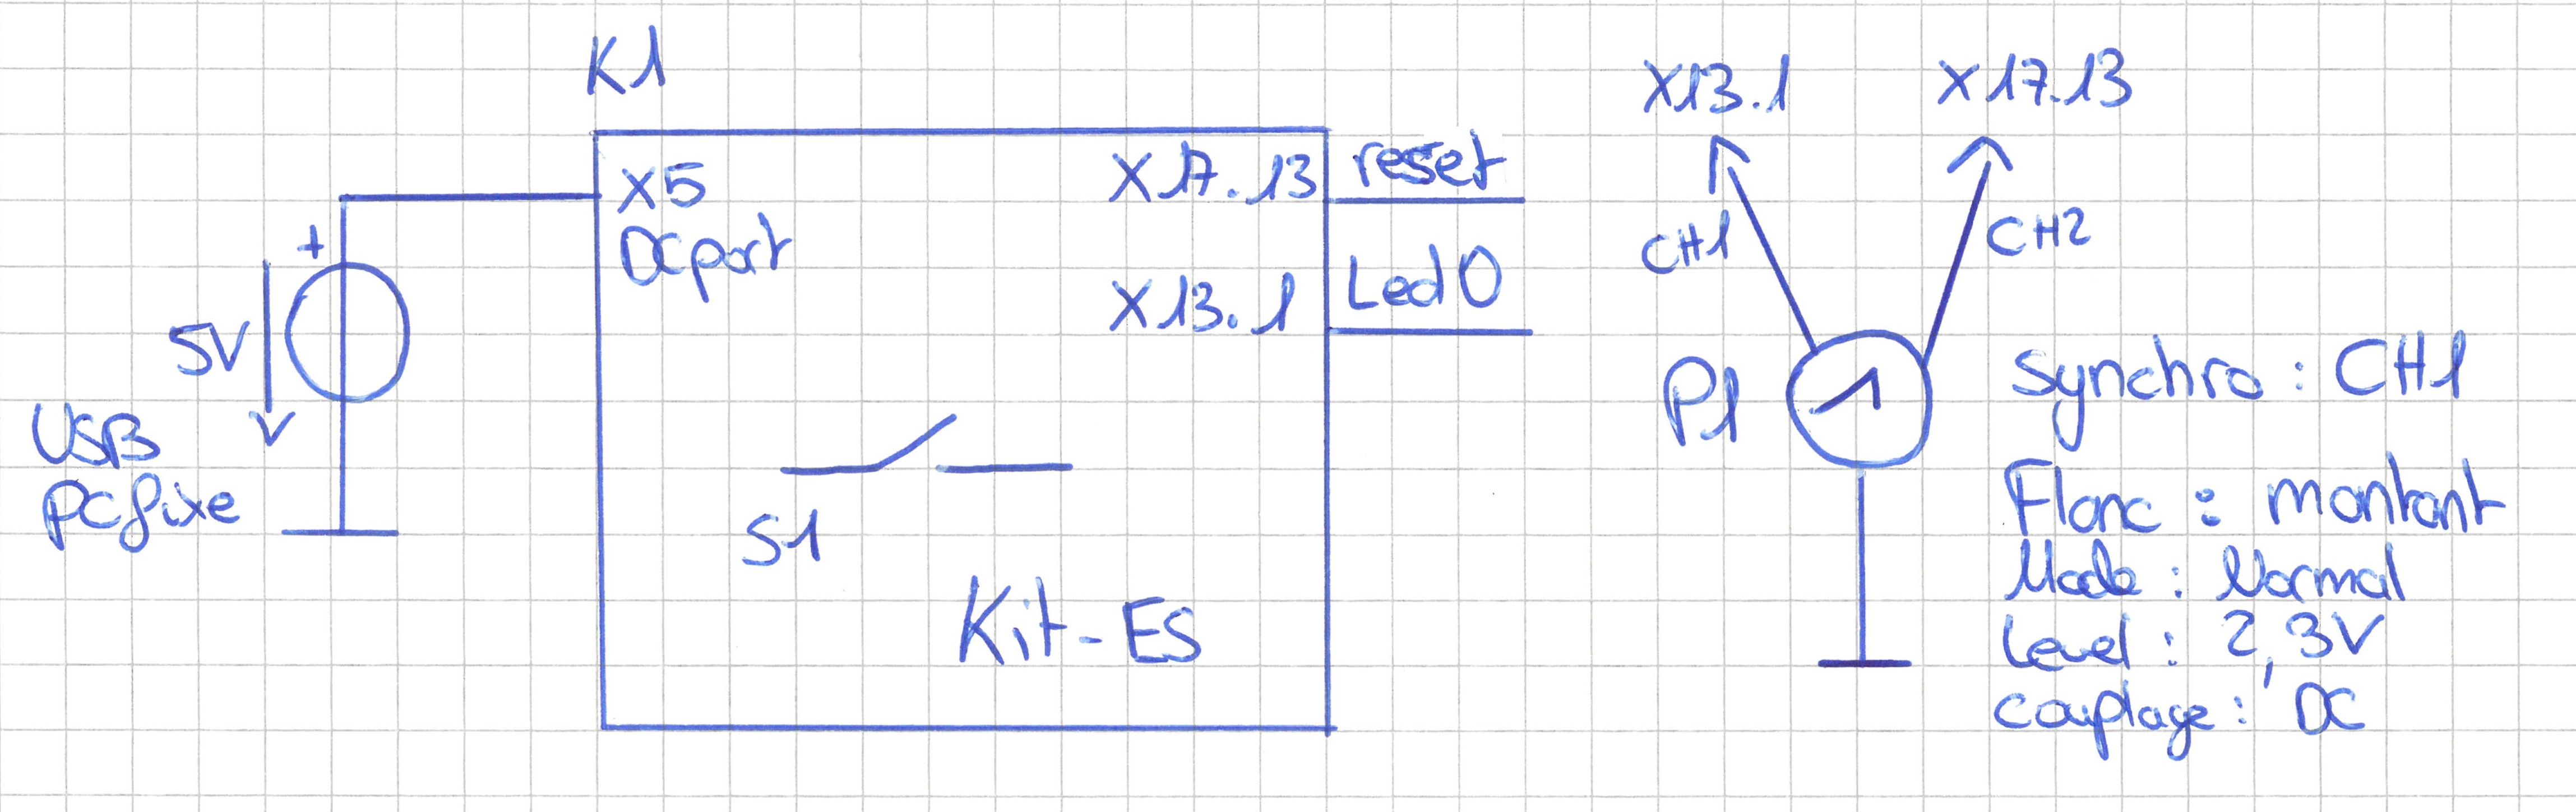 K1
X5
DC port
X17.13
reset
X13.1
Led0
+
5V
USB
PC fixe
S1
Kit-ES
X13.1
X17.13
CH1
CH2
P1
Synchro : CH1
Flanc : montant
Mode : Normal
Level : 2,3V
couplage : DC